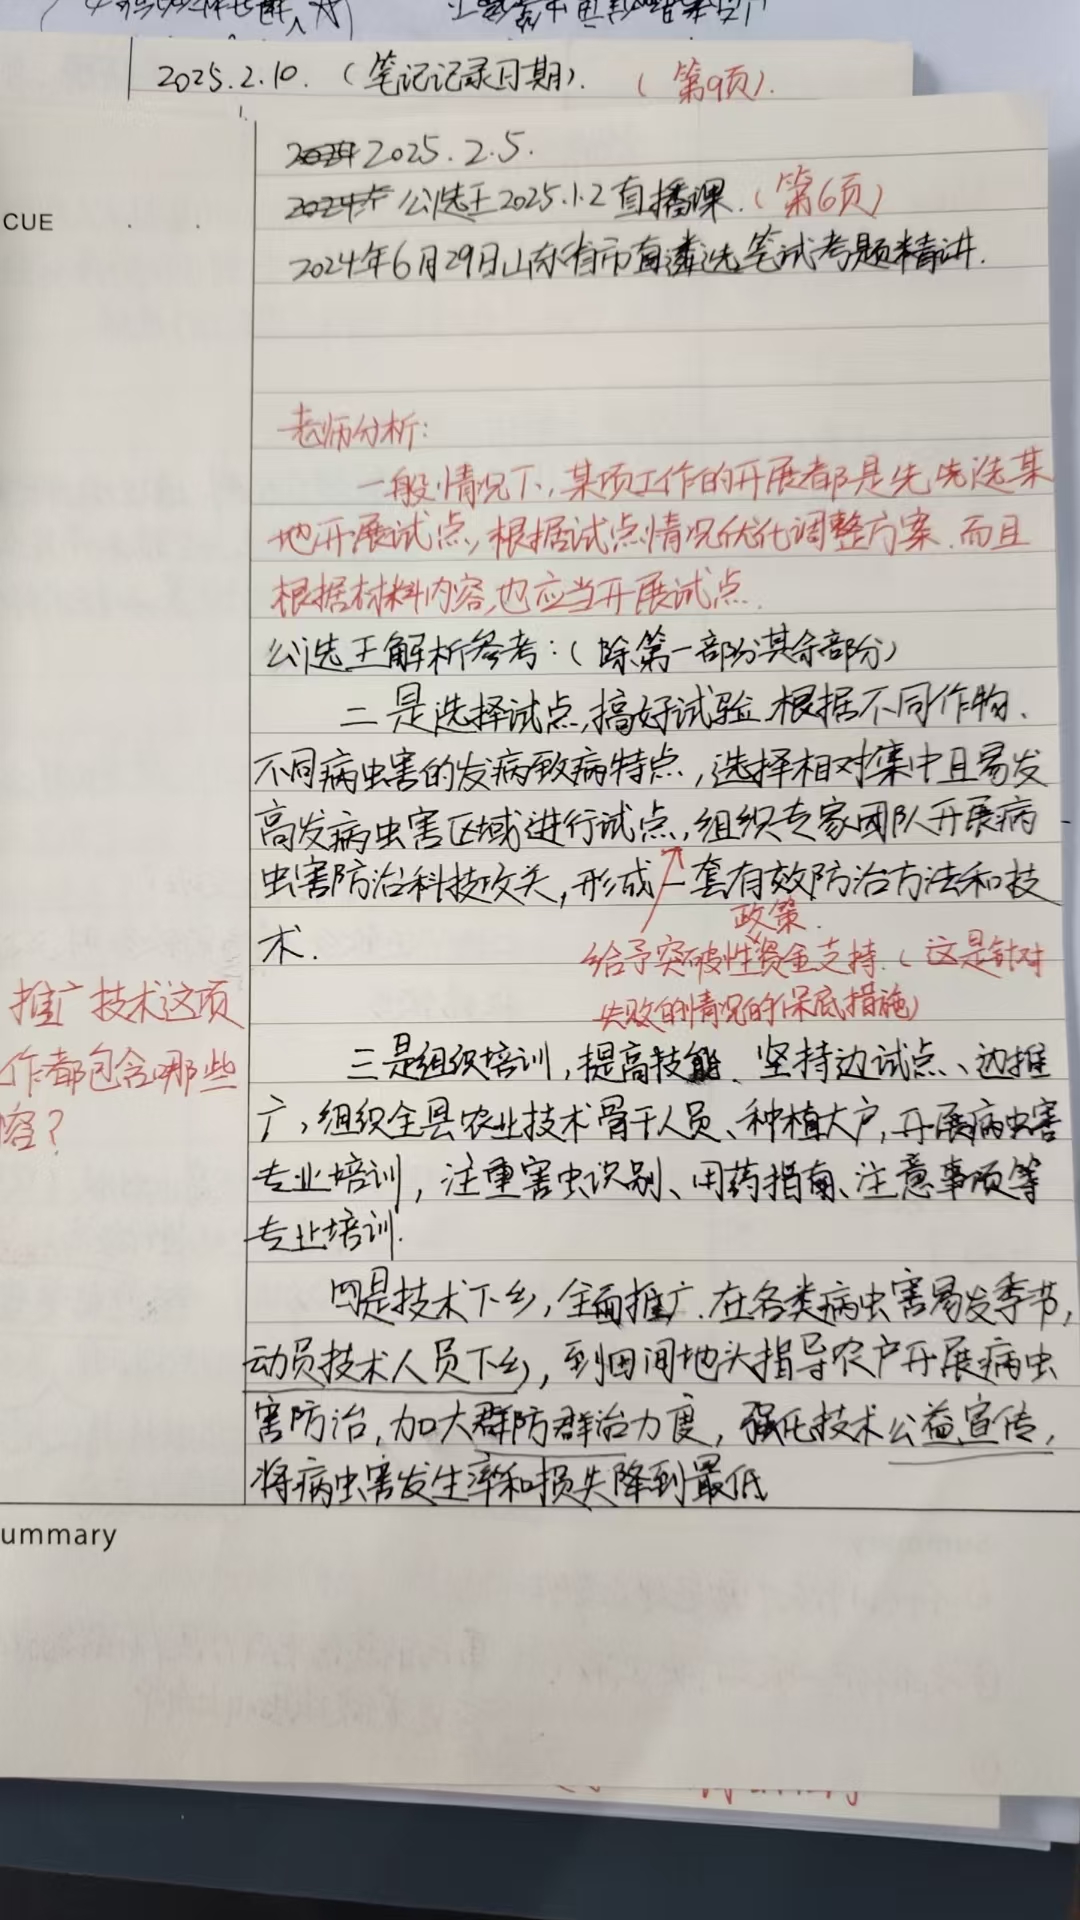 2025.2.10.（笔记记录日期）.（第9页）.
2025.2.5.
CUE
公选王2025.1.2直播课.（第6页）
2024年6月29日山东省市直遴选笔试考题精讲.
老师分析：
一般情况下，某项工作的开展都是先选某
地开展试点，根据试点情况优化调整方案.而且
根据材料内容，也应当开展试点.
公选王解析参考：（除第一部分其余部分）
二是选择试点，搞好试验.根据不同作物、
不同病虫害的发病致病特点，选择相对集中且易发
高发病虫害区域进行试点，组织专家团队开展病
虫害防治科技攻关，形成一套有效防治方法和技
术.
政策.
给予突破性资金支持.（这是针对
失败的情况的保底措施）
推广技术这项
作都包含哪些
容？
三是组织培训，提高技能.坚持边试点、边推
广，组织全县农业技术骨干人员、种植大户，开展病虫害
专业培训，注重害虫识别、用药指南、注意事项等
专业培训.
四是技术下乡，全面推广.在各类病虫害易发季节，
动员技术人员下乡，到田间地头指导农户开展病虫
害防治，加大群防群治力度，强化技术公益宣传，
将病虫害发生率和损失降到最低
ummary